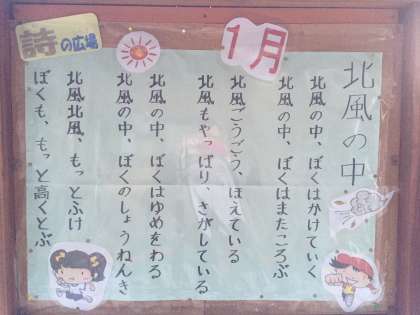 詩の広場
1月
北風の中
北風の中、ぼくはかけていく
北風の中、ぼくはまたころぶ
北風ごうごう、ほえている
北風もやっぱり、さがしている
北風の中、ぼくはゆめをわる
北風の中、ぼくのしょうねんき
北風北風、もっとふけ
ぼくも、もっと高くとぶ